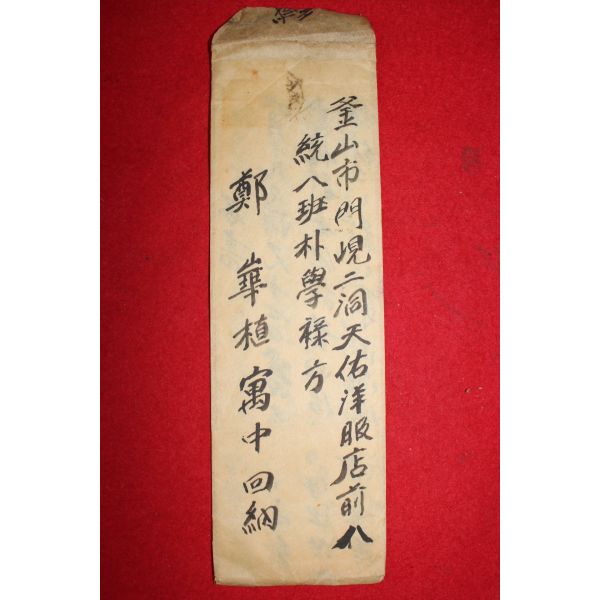 釜山市門峴二洞天佑洋服店前八
統八班朴學祿方
鄭崋植寓中回納